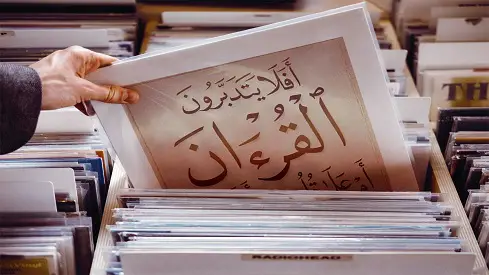 أَفَلَا يَتَدَبَّرُونَ
ٱلْقُرْءَانَ
أَمْ عَلَىٰ قُلُوبٍ
TH
RADIOHEAD